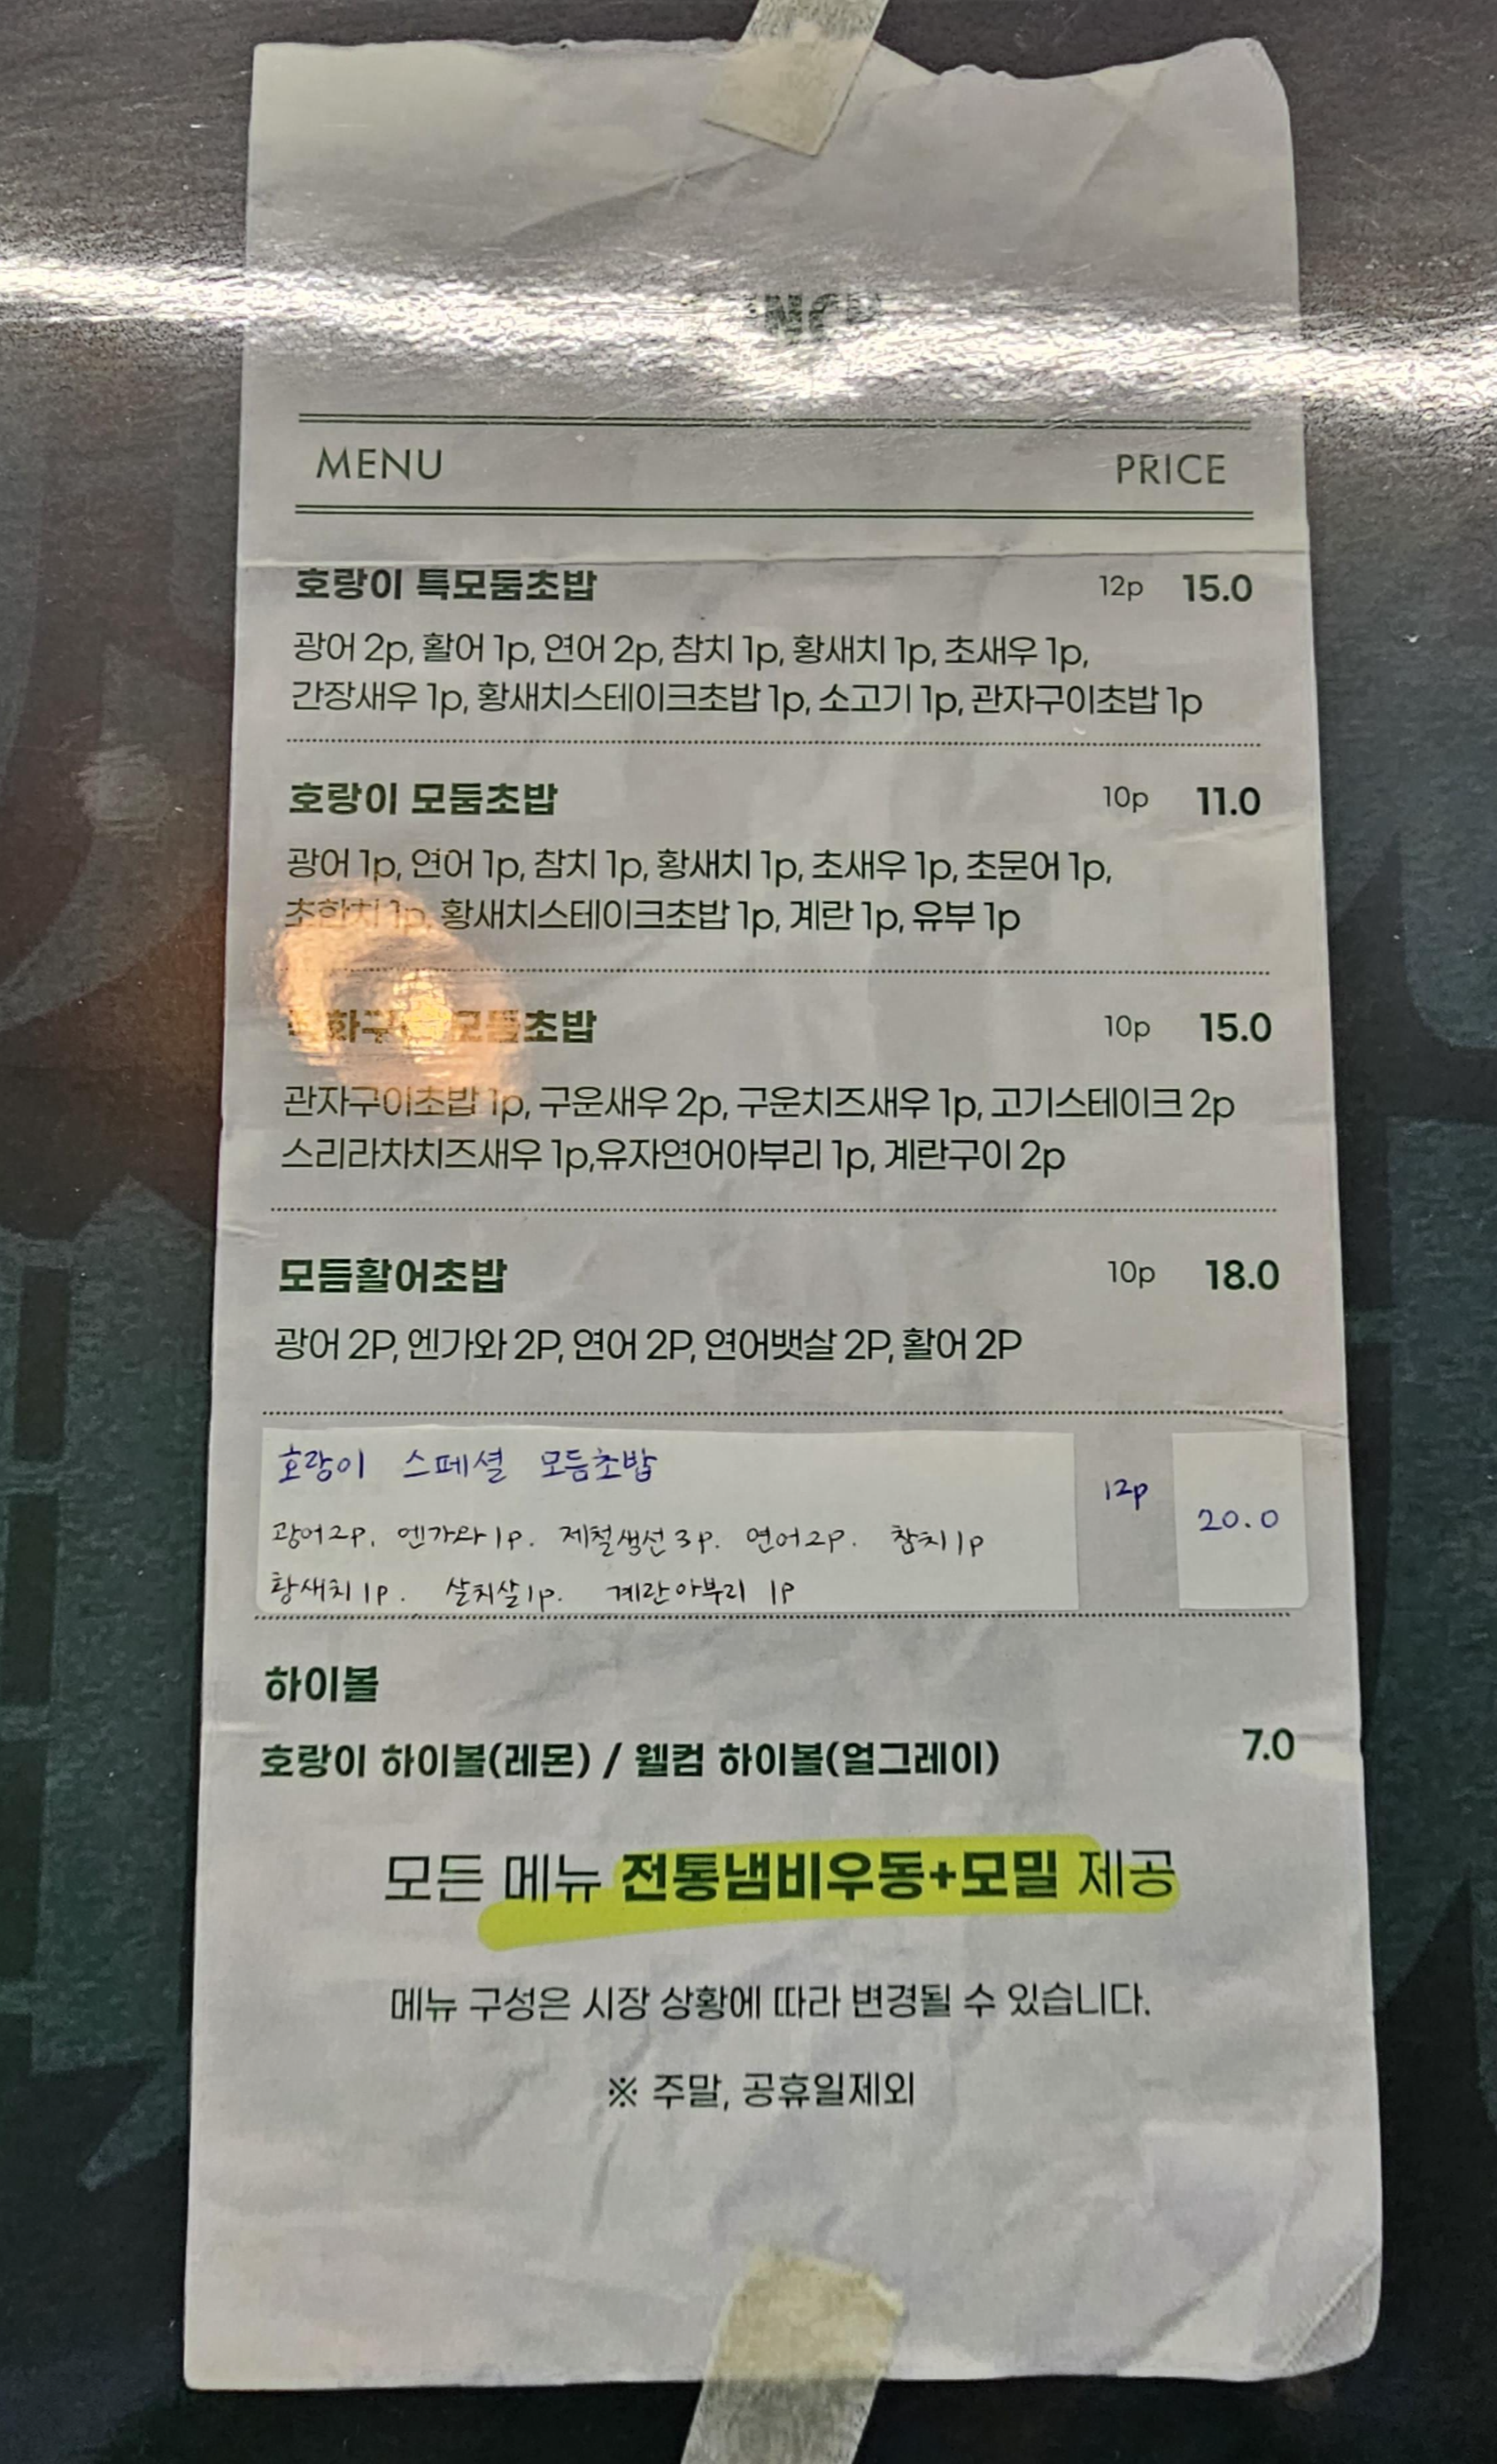 MENU PRICE
호랑이 특모둠초밥 12p 15.0
광어 2p, 활어 1p, 연어 2p, 참치 1p, 황새치 1p, 초새우 1p,
간장새우 1p, 황새치스테이크초밥 1p, 소고기 1p, 관자구이초밥 1p
호랑이 모둠초밥 10p 11.0
광어 1p, 연어 1p, 참치 1p, 황새치 1p, 초새우 1p, 초문어 1p,
초한치 1p, 황새치스테이크초밥 1p, 계란 1p, 유부 1p
10p 15.0
관자구이초밥 1p, 구운새우 2p, 구운치즈새우 1p, 고기스테이크 2p
스리라차치즈새우 1p,유자연어아부리 1p, 계란구이 2p
모듬활어초밥 10p 18.0
광어 2P, 엔가와 2P, 연어 2P, 연어뱃살 2P, 활어 2P
호랑이 스페셜 모듬초밥 12p 20.0
광어2p. 엔가와1p. 제철생선3p. 연어2p. 참치1p
황새치1p. 살치살1p. 계란아부리 1p
하이볼
호랑이 하이볼(레몬) / 웰컴 하이볼(얼그레이) 7.0
모든 메뉴 전통냄비우동+모밀 제공
메뉴 구성은 시장 상황에 따라 변경될 수 있습니다.
※ 주말, 공휴일제외